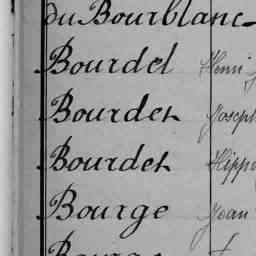 du Bourblanc
Bourdel Henri
Bourdet Joseph
Bourdet Hippo
Bourge Jean